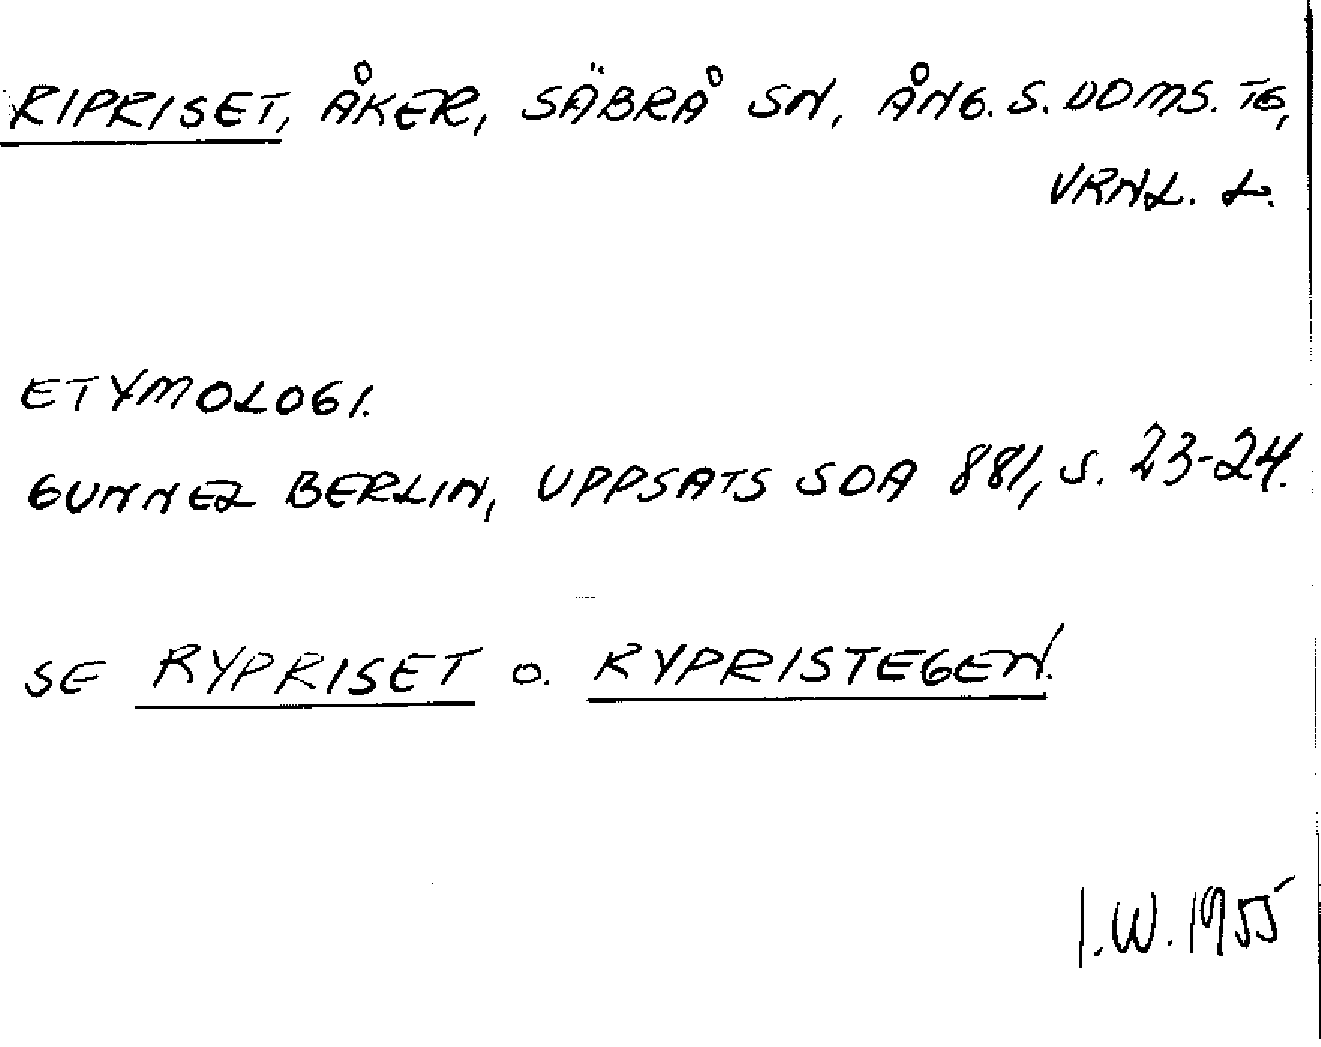 RIPRISET, ÅKER, SÄBRÅ SN, ÅNG. S. DOMS. TG,
VRNL. L.
ETYMOLOGI.
GUNNEL BERLIN, UPPSATS SOA 881, S. 23-24.
SE RYPRISET O. RYPRISTEGEN.
I.W. 1955